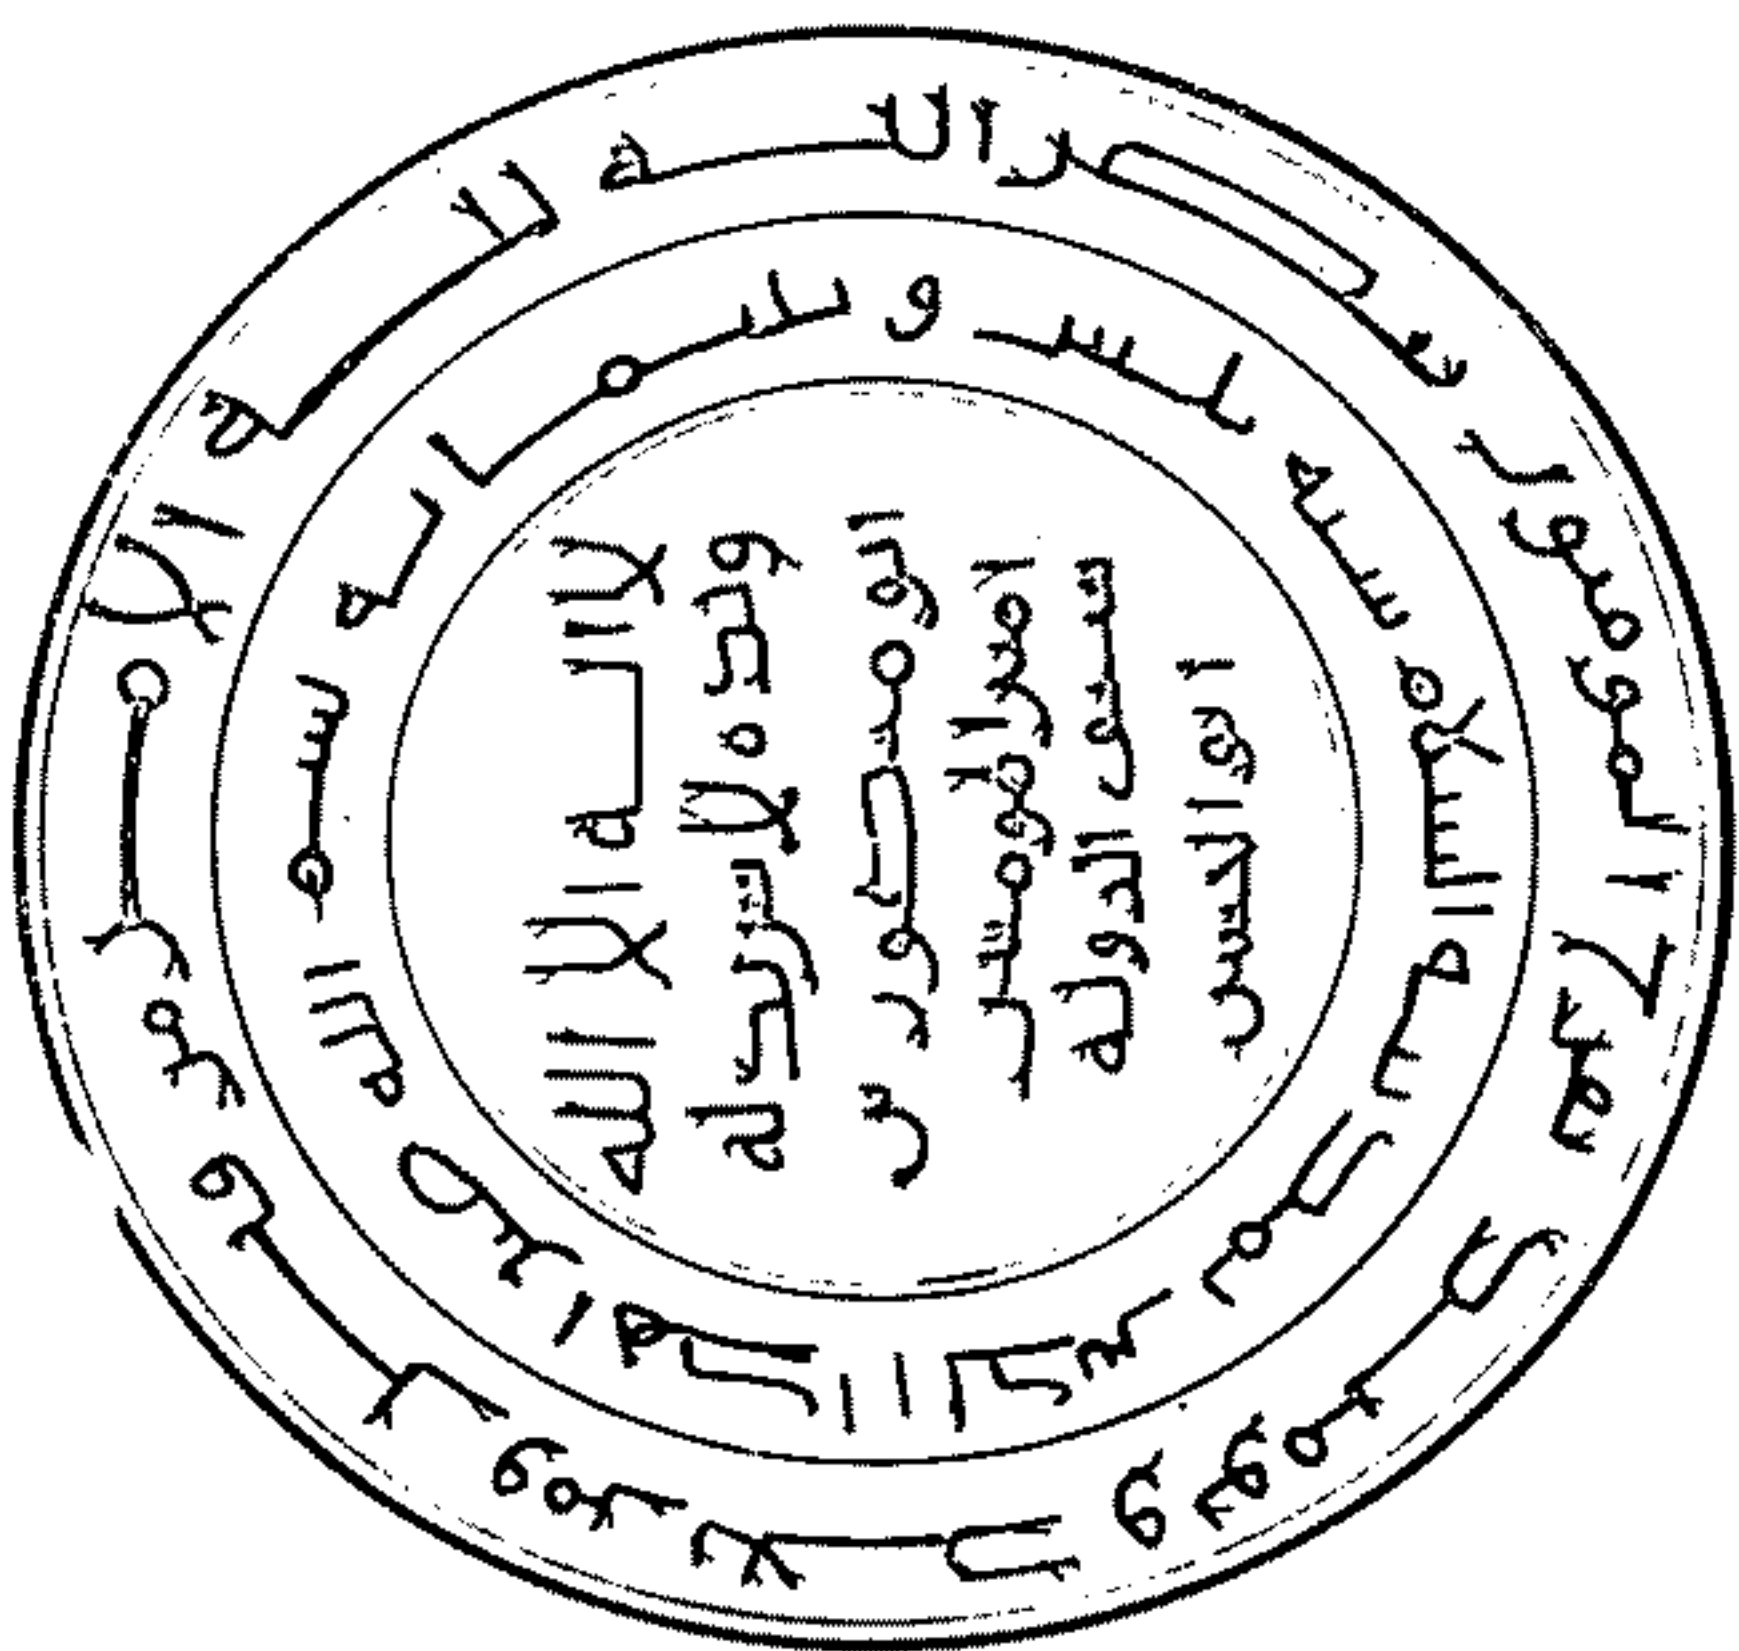 لا اله الا الله
وحده لا شريك له
ابو منصور بن
امير المومنين
سيف الدولة
ابو الحسن
بسم الله ضرب هذا الدينر بمدينة السلام سنة ثلثين وثلثمائة
لله الامر من قبل ومن بعد ويومئذ يفرح المومنون بنصر الله